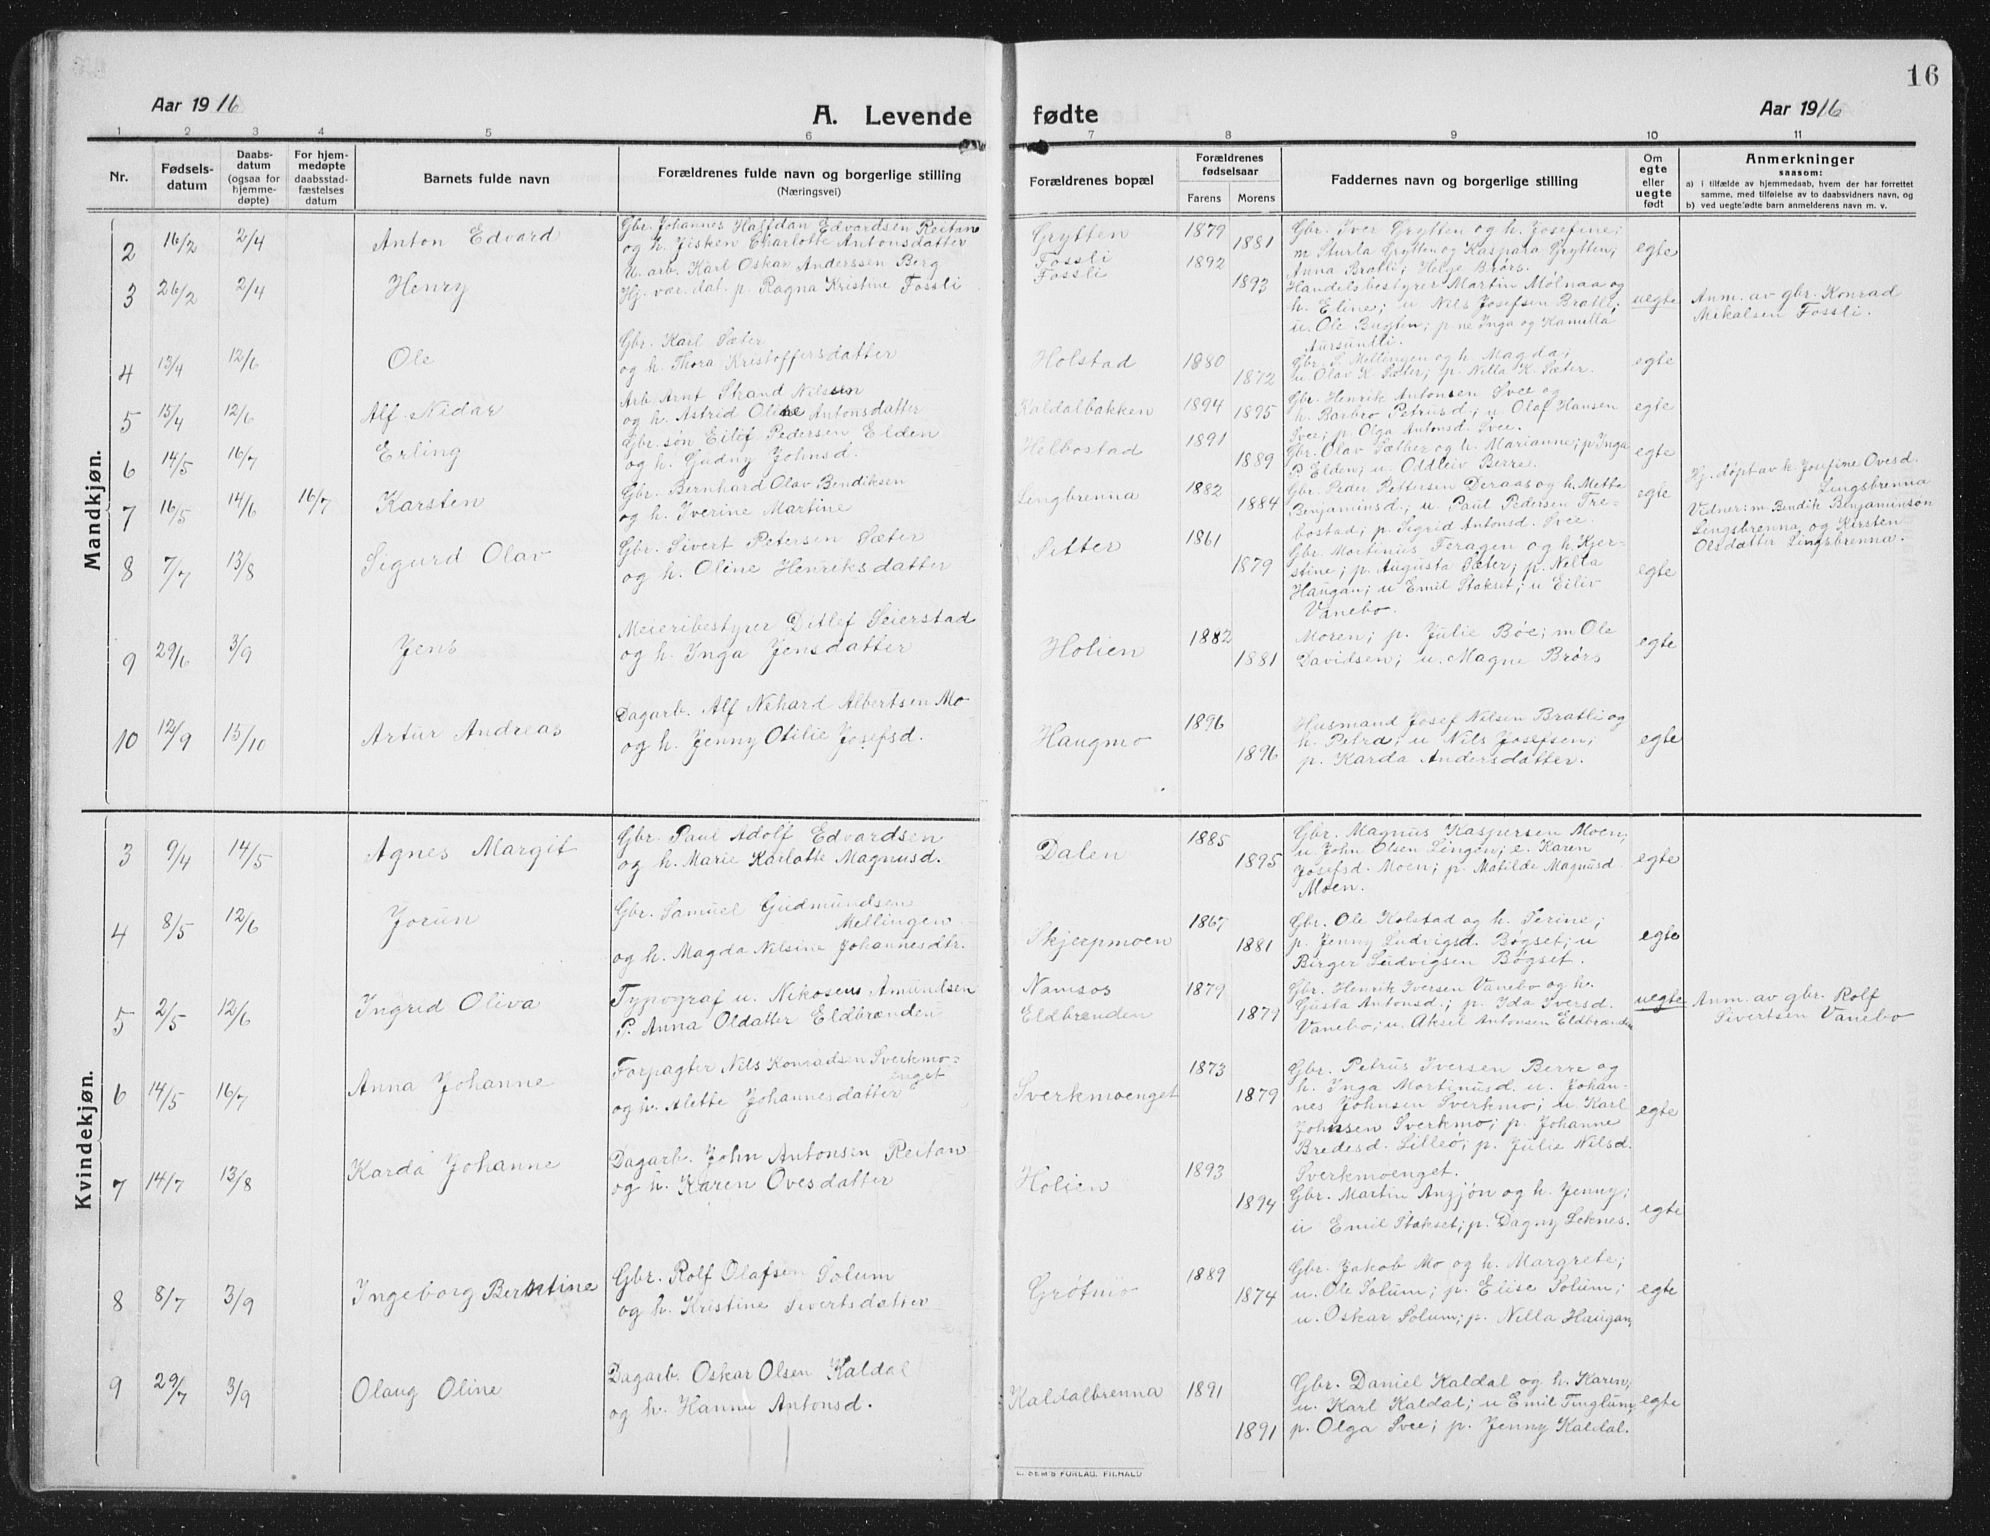 16
Aar 1916
A. Levende fødte
Aar 1916
1 2 3 4 5 6 7 8 9 10 11
Nr.
Fødsels-
datum
Daabs-
datum
(ogsaa for
hjemme-
døpte)
For hjem-
medøpte
daabsstad-
fæstelses
datum
Barnets fulde navn
Forældrenes fulde navn og borgerlige stilling
(Næringsvei)
Forældrenes bopæl
Forældrenes
fødselsaar
Farens Morens
Faddernes navn og borgerlige stilling
Om
egte
eller
uegte
født
Anmerkninger
saasom:
a) i tilfælde av hjemmedaab, hvem der har forrettet
samme, med tilføielse av to daabsvidners navn, og
b) ved uegte fødte barn anmelderens navn m. v.
Mandkjøn.
2 16/2 2/4 Anton Edvard
Gbr. Johannes Halfdan Edvardsen Reitan
og h. Jisken Charlotte Antonsdatter
Grytten
1879 1881
Gbr. Iver Grytten og h. Josefine;
m Sturla Grytten og Kaspara Grytten;
Anna Bratli; Helge Brørs.
egte
3 26/2 2/4 Henry
U. arb. Karl Oskar Anderssen Berg
Hj. vær. dat. p. Ragna Kristine Fossli
Fossli
Fossli
1892 1893
Handelsbestyrer Martin Mølnaa og
h. Eline; u Nils Josefsen Bratli;
u. Ole Bugten; p. ne Inga og Kamilla
Aursundli.
uegte
Anm. av gbr. Konrad
Mikalsen Fossli.
4 13/4 12/6 Ole
Gbr. Karl Sæter
og h. Thora Kristoffersdatter
Holstad
1880 1872
Gbr. S. Mellingen og h. Magda;
u Olav K Sæter; p. Nilla K. Sæter.
egte
5 15/4 12/6 Alf Nidar
Arb. Arnt Strand Nilssen
og h. Astrid Oline Antonsdatter
Kaldalbakken
1894 1895
Gbr. Henrik Antonsen Svee og
h. Barbro Petrusd; u Olaf Hansen
Svee; p Olga Antonsd. Svee.
egte
6 14/5 16/7 Erling
Gbr. søn Eilif Pedersen Elden
og h. Gudny Johnsd.
Helbostad
1891 1889
Gbr. Olav Sæther og h. Marianne; p. Inga
P Elden; u. Oddleiv Berre.
egte
7 16/5 14/6 16/7 Karsten
Gbr. Bernhard Olav Bendiksen
og h. Iverine Martine
Lengbrenna
1882 1884
Gbr. Peder Pettersen Deraas og h. Metta
Benjaminsd; u Paul Pedersen Tre-
bostad; p. Sigrid Antonsd. Svee.
egte
Hj. døpt av h. Josefine Ovesd.
Lingsbrenna
Vidner: m Bendik Benjaminson
Lingsbrenna og Kirsten
Olsdatter Lingsbrenna.
8 7/7 13/8 Sigurd Olav
Gbr. Sivert Petersen Sæter
og h. Oline Henriksdatter
Setter
1861 1879
Gbr. Mortinus Feragen og h. Kjer-
stine; p. Augusta Sæter; p. Nilla
Haugan; u Emil Stokset; u Eiliv
Vanebo.
egte
9 29/6 3/9 Jens
Meieribestyrer Ditlef Seierstad
og h. Inga Jensdatter
Holien
1882 1881
Moren; p. Julie Bøe; m Ole
Davidsen; u. Magne Brørs
egte
10 12/9 15/10 Artur Andreas
Dagarb. Alf Nihard Albertsen Mo
og h. Jenny Otilie Josefsd.
Haugmo
1896 1896
Husmand Josef Nilsen Bratli og
h. Petra; u Nils Josefsen;
p. Karda Andersdatter.
egte
Kvindekjøn.
3 9/4 14/5 Agnes Margit
Gbr. Paul Adolf Edvardsen
og h. Marie Karlotte Magnusd.
Dalen
1885 1895
Gbr. Magnus Kaspersen Moen;
u John Olsen Lingen; e. Karen
Josefsd. Moen; p. Matilde Magnusd.
Moen.
egte
4 8/5 12/6 Jorun
Gbr. Samuel Gudmundsen
Mellingen
og h. Magda Nilsine Johannesdtr.
Skjerpmoen
1867 1881
Gbr. Ole Kolstad og h. Serine;
p. Jenny Ludvigsd. Bøgset; u
Birger Ludvigsen Bøgset.
egte
5 2/5 12/6 Ingrid Oliva
Typograf u. Nikosens Amundsen
P. Anna Oldatter Eldbrænden
Namsos
Eldbrenden
1879 1879
Gbr. Henrik Iversen Vanebo og h.
Gusta Antonsd.; p. Ida Iversd.
Vanebo; u. Aksel Antonsen Eldbrænden
uegte
Anm. av gbr. Rolf
Sivertsen Vanebo
6 14/5 16/7 Anna Johanne
Forpagter Nils Konradsen Sverkmo=
enget
og h. Alette Johannesdatter
Sverkmoenget
1873 1879
Gbr. Petrus Iversen Berre og
h. Inga Mortinusd. u. Johan-
nes Johnsen Sverkmo; u Karl
Johnsen Sverkmo; p. Johanne
Bredesd. Lilleø; p. Julie Nilsd.
Sverkmoenget.
egte
7 14/7 13/8 Karda Johanne
Dagarb. John Antonsen Reitan
og h. Karen Ovesdatter
Holien
1893 1894
Gbr. Martin Angjøn og h. Jenny;
u Emil Stokset; p. Dagny Leknes.
egte
8 8/7 3/9 Ingeborg Berntine
Gbr. Rolf Olafsen Solum
og h. Kristine Sivertsdatter
Grøtmo
1889 1874
Gbr. Jakob Mo og h. Margrete;
u. Ole Solum; p. Elise Solum;
u. Oskar Solum; p. Nilla Haugan,
egte
9 29/7 3/9 Olaug Oline
Dagarb. Oskar Olsen Kaldal
og h. Hanna Antonsd.
Kaldalbrenna
1891 1891
Gbr. Daniel Kaldal og h. Karen;
u. Karl Kaldal; u Emil Tinglum;
p. Olga Svee; p. Jenny Kaldal.
egte
E. SEM'S FORLAG, FR.HALD